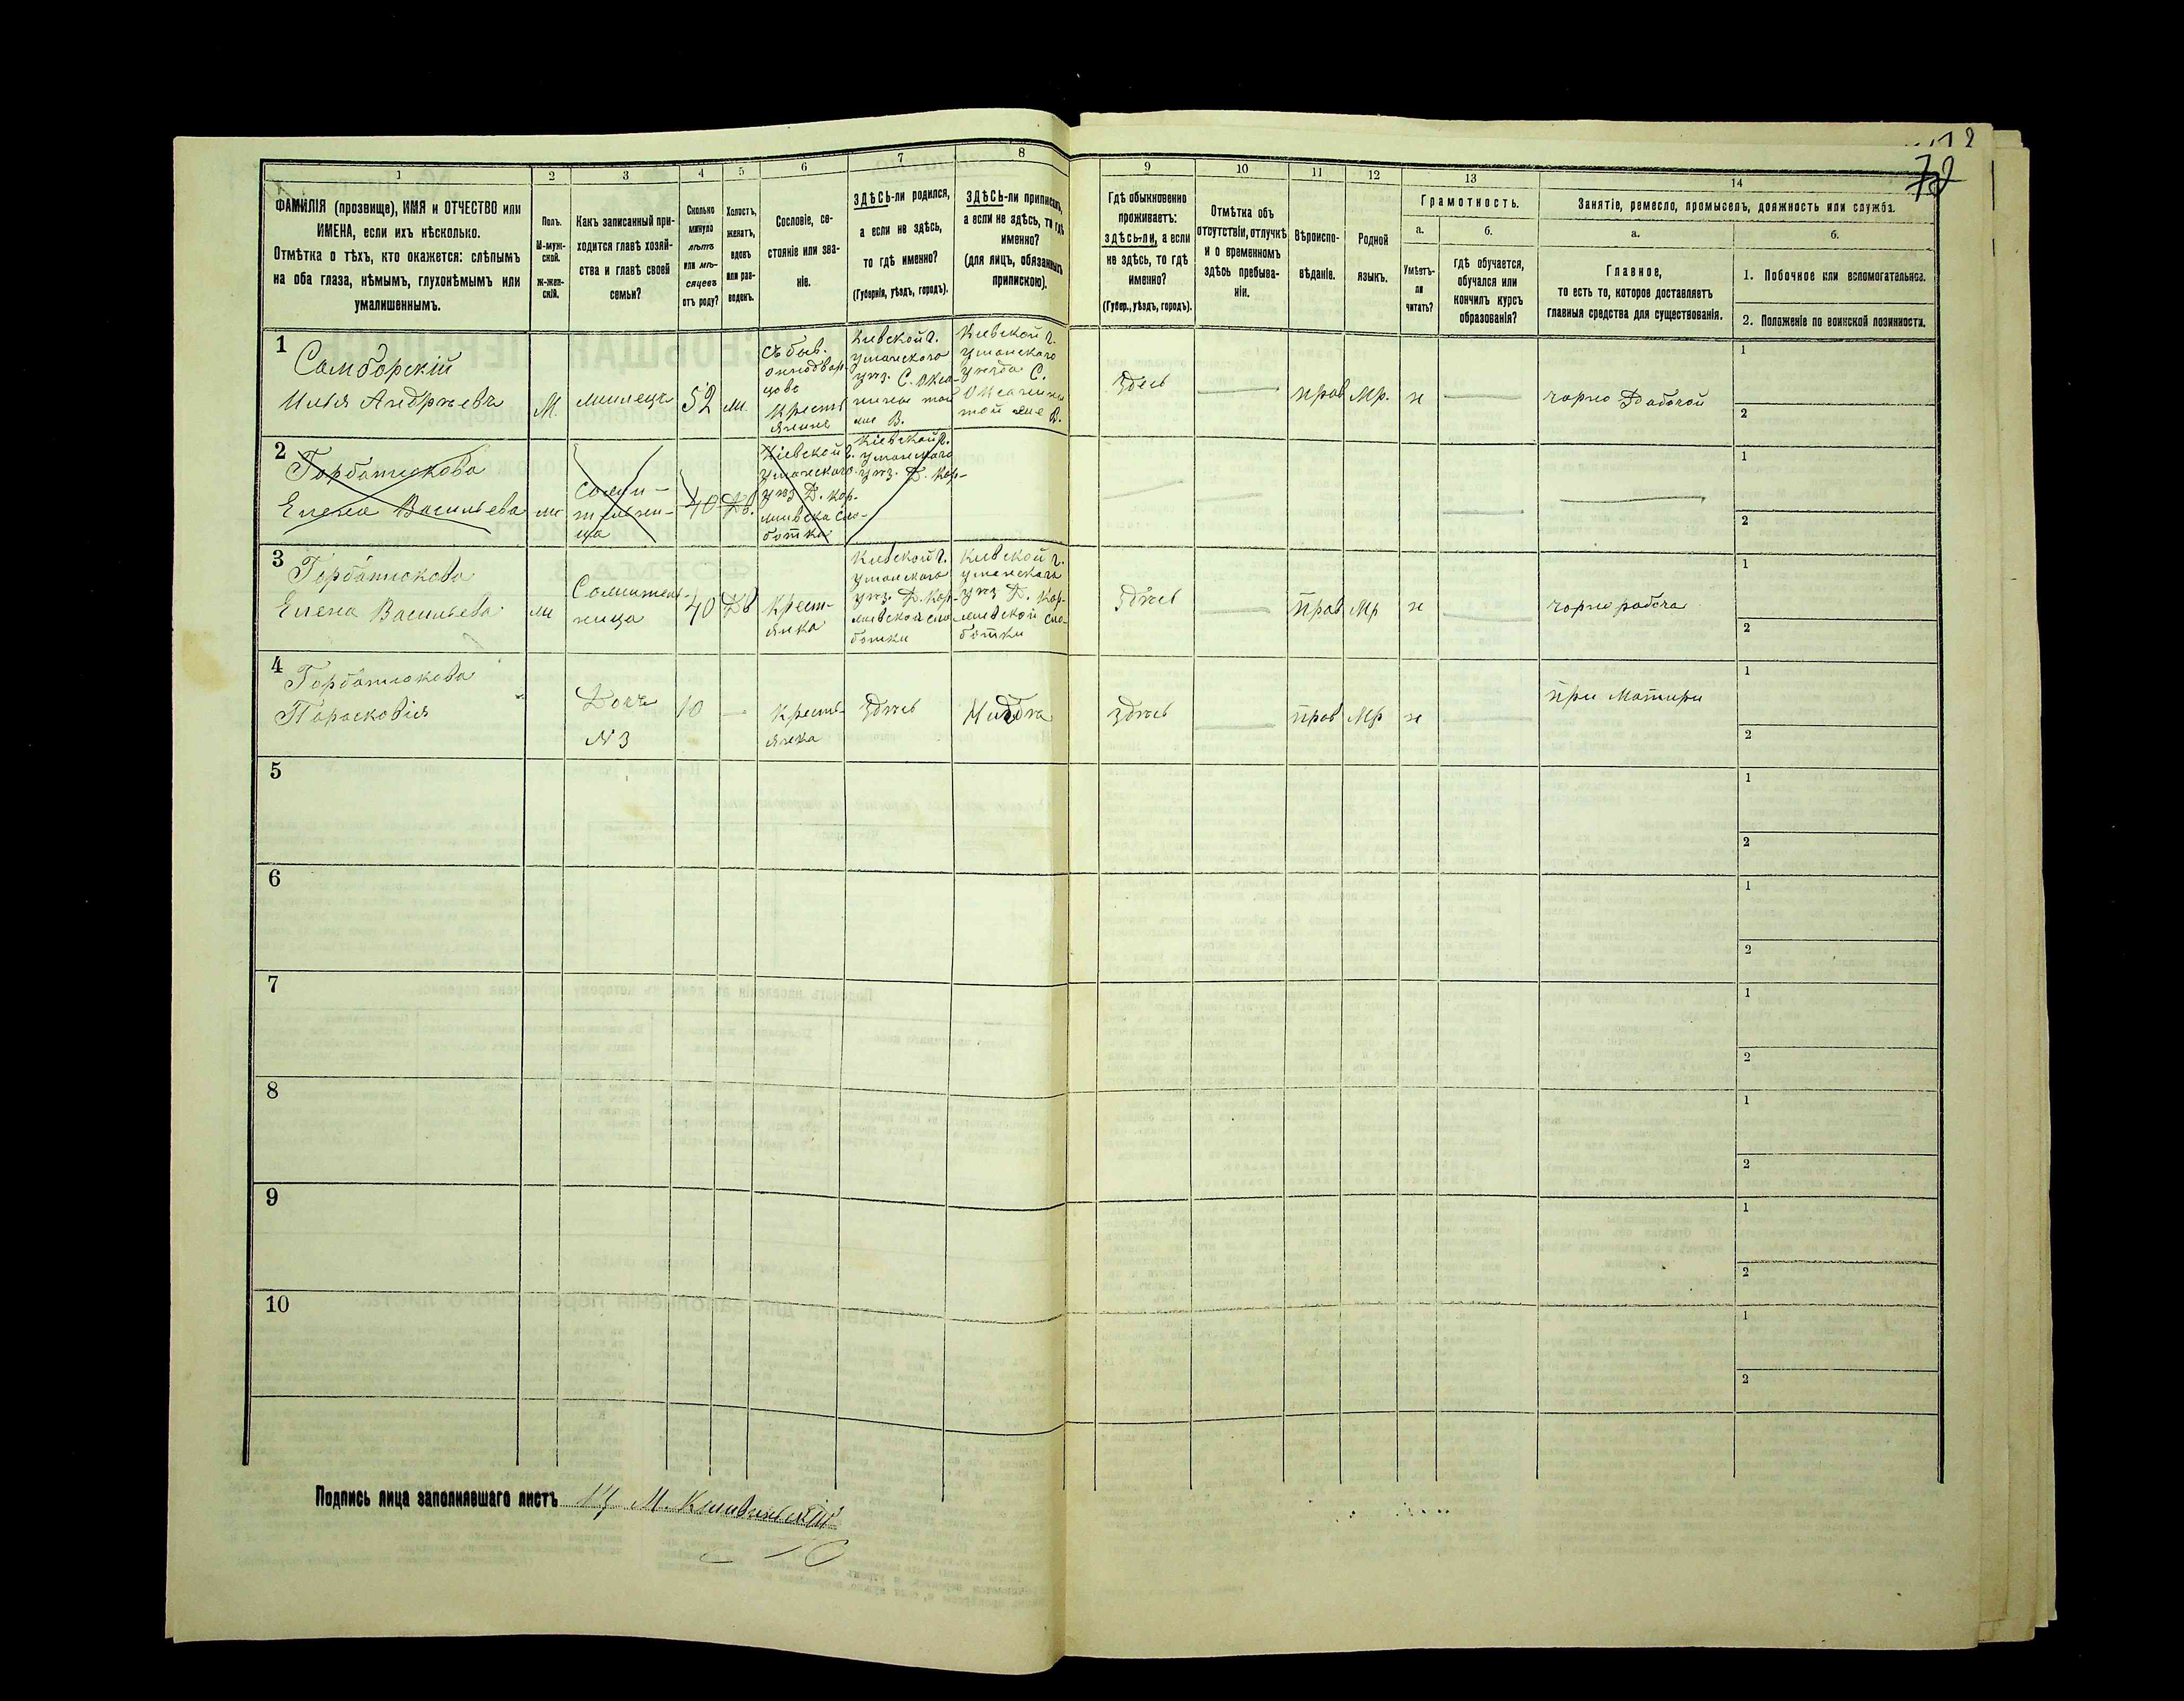 72
1
2
3
4
5
6
7
8
9
10
11
12
13
14
ФАМИЛІЯ (прозвище), ИМЯ и ОТЧЕСТВО или
ИМЕНА, если ихъ нѣсколько.
Отмѣтка о тѣхъ, кто окажется: слѣпымъ
на оба глаза, нѣмымъ, глухонѣмымъ или
умалишеннымъ.
Полъ.
М-муж-
ской.
ж-жен-
скій.
Какъ записанный при-
ходится главѣ хозяй-
ства и главѣ своей
семьи?
Сколько
минуло
лѣтъ
или мѣ-
сяцевъ
отъ роду?
Холостъ,
женатъ,
вдовъ
или раз-
веденъ.
Сословіе, со-
стояніе или зва-
ніе.
ЗДѢСЬ-ли родился,
а если не здѣсь,
то гдѣ именно?
(Губернія, уѣздъ, городъ).
ЗДѢСЬ-ли приписанъ,
а если не здѣсь, то гдѣ
именно?
(для лицъ, обязанныхъ
припискою).
Гдѣ обыкновенно
проживаетъ:
здѣсь-ли, а если
не здѣсь, то гдѣ
именно?
(Губер., уѣздъ, городъ).
Отмѣтка объ
отсутствіи, отлучкѣ
и о временномъ
здѣсь пребыва-
ніи.
Вѣроиспо-
вѣданіе.
Родной
языкъ.
Грамотность.
а.
б.
Умѣетъ-
ли
читать?
гдѣ обучается,
обучался или
кончилъ курсъ
образованія?
Занятіе, ремесло, промыселъ, должность или служба.
а.
б.
Главное,
то есть то, которое доставляетъ
главныя средства для существованія.
1. Побочное или вспомогательное.
2. Положеніе по воинской повинности.
1
Самборскій
Илья Андрѣевъ
М.
жилецъ
52
ж.
съ быв.
однодвор-
цовъ
Крестъ
янинъ
Кіевской г.
Уманского
уѣз. С.
Кіевской г.
Уманского
уѣзда С.
здесь
прав
Мр.
н
чорно Рабочой
1
2
2
Горбатюкова
Елена Васильева
ж
Сожи-
тельни-
ца
40
Дв.
Кіевской г.
Уманского
уѣз Д. Кор-
жовска Сло-
ботка
Кіевской г.
Уманского
уѣз. Д. Кор-
1
2
3
Горбатюкова
Елена Васильева
ж
Сожитель-
ница
40
Дв
Крест-
янка
Кіевской г.
Уманского
уѣз. Д. Кор-
жовской сло
ботки
Кіевской г.
Уманскаго
уѣз Д. Кор-
жовской сло-
ботки
здѣсь
прав
Мр
н
чорно рабоча
1
2
4
Горбатюкова
Парасковія
Дочь
N 3
10
Кресть-
янка
здѣсь
здѣсь
прав
Мр
н
при Матири
1
2
5
1
2
6
1
2
7
1
2
8
1
2
9
1
2
10
1
2
Подпись лица заполнявшаго листъ